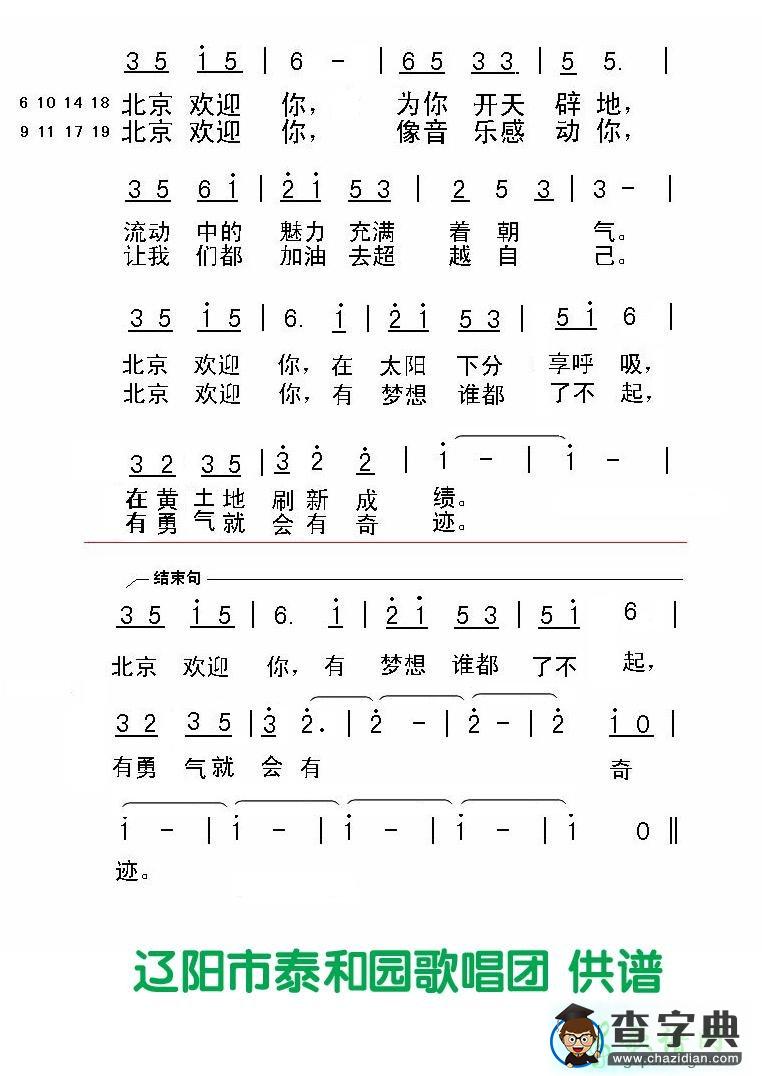 3 5 i 5 | 6 - | 6 5 3 3 | 5 5. |
6 10 14 18 北京 欢迎 你， 为你 开天 辟 地，
9 11 17 19 北京 欢迎 你， 像音 乐感 动 你，
3 5 6 i | 2 i 5 3 | 2 5 3 | 3 - |
流动 中的 魅力 充满 着 朝 气。
让我 们都 加油 去超 越 自 己。
3 5 i 5 | 6. i | 2 i 5 3 | 5 i 6 |
北京 欢迎 你，在 太阳 下分 享呼 吸，
北京 欢迎 你，有 梦想 谁都 了不 起，
3 2 3 5 | 3 2 2 | i - | i - |
在黄 土地 刷新 成 绩。
有勇 气就 会有 奇 迹。
结束句
3 5 i 5 | 6. i | 2 i 5 3 | 5 i 6 |
北京 欢迎 你，有 梦想 谁都 了不 起，
3 2 3 5 | 3 2. | 2 - | 2 - | 2 i 0 |
有勇 气就 会 有 奇
i - | i - | i - | i - | i 0 ‖
迹。
辽阳市泰和园歌唱团 供谱
查字典
www.chazidian.com